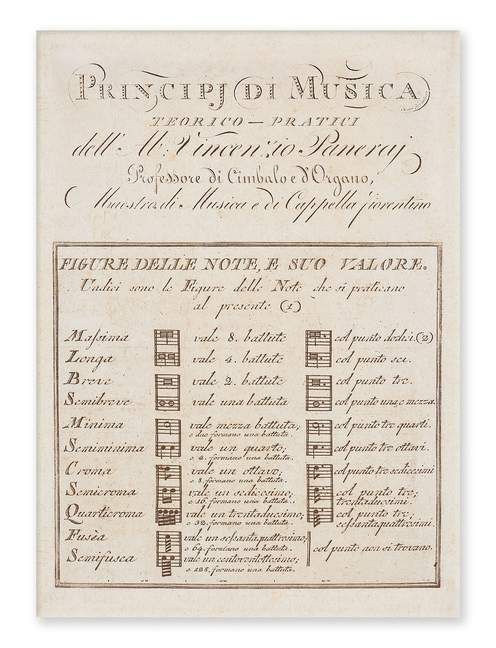 PRINCIPJ DI MUSICA
TEORICO — PRATICI
dell' Ab. Vincenzio Panerai
Professore di Cimbalo e d'Organo,
Maestro di Musica e di Cappella fiorentino
FIGURE DELLE NOTE, E SUO VALORE.
Undici sono le Figure delle Note che si praticano
al presente (1)
Massima vale 8. battute col punto dodici. (2)
Longa vale 4. battute col punto sei.
Breve vale 2. battute col punto tre.
Semibreve vale una battuta col punto una e mezza.
Minima vale mezza battuta; col punto tre quarti.
e due formano una battuta.
Semiminima vale un quarto; col punto tre ottavi.
e 4. formano una battuta.
Croma vale un ottavo; col punto tre sedicesimi
e 8. formano una battuta.
Semicroma vale un sedicesimo; col punto tre;
e 16. formano una battuta. trentaduesimi.
Quarticroma vale un trentaduesimo; col punto tre;
e 32. formano una battuta. sessantaquattresimi.
Fusèa vale un sessantaquattresimo;
e 64. formano una battuta. col punto non si trovano.
Semifusea vale un centoventottesimo;
e 128. formano una battuta.